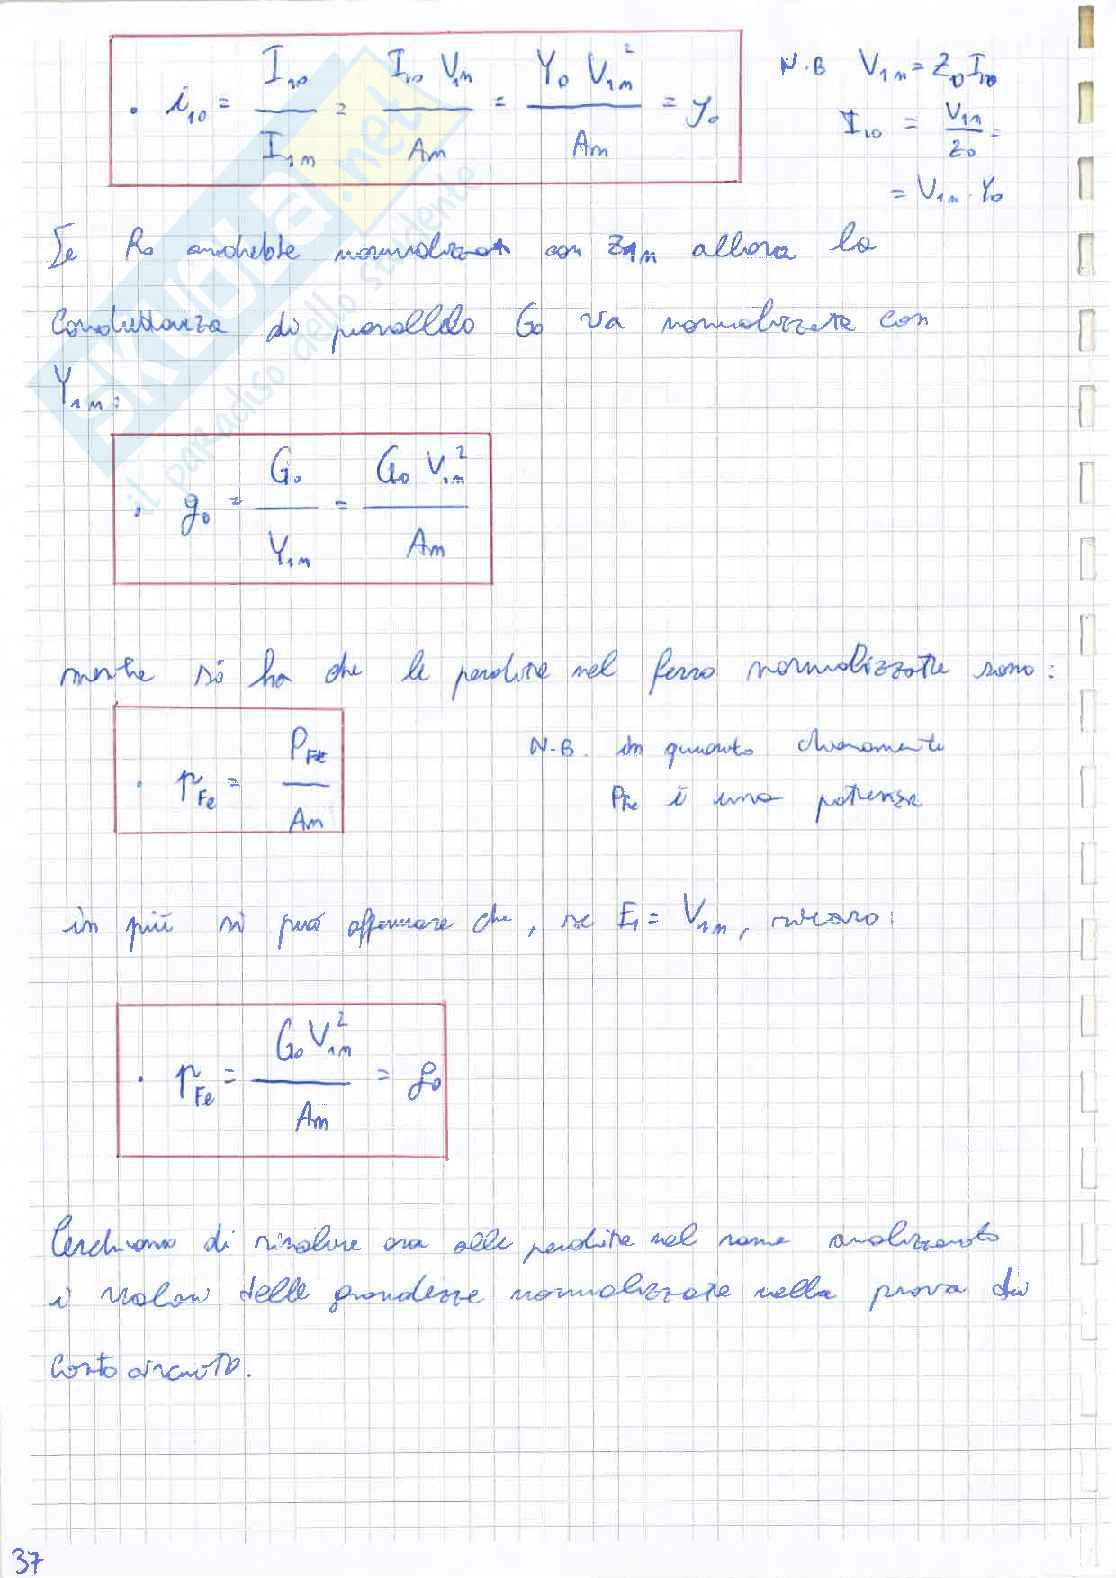 • i₁₀ = I₁₀ / I₁ₙ = I₁₀ V₁ₙ / Aₙ = Y₀ V₁ₙ² / Aₙ = y₀
N.B V₁ₙ = Z₀ I₁₀
I₁₀ = V₁ₙ / Z₀ =
= V₁ₙ · Y₀
Se R₀ andrebbe normalizzata con Z₁ₙ allora la
conduttanza di parallelo G₀ va normalizzata con
Y₁ₙ:
• g₀ = G₀ / Y₁ₙ = G₀ V₁ₙ² / Aₙ
mentre si ha che le perdite nel ferro normalizzate sono:
• p_Fe = P_Fe / Aₙ
N.B. in quanto chiaramente
P_Fe è una potenza
in più si può affermare che, se E₁ = V₁ₙ,
• p_Fe = G₀ V₁ₙ² / Aₙ = g₀
Cerchiamo di risalire ora alle perdite nel rame analizzando
i valori delle grandezze normalizzate nella prova di
corto circuito.
37
SKUOLA.net
il paradiso dello studente